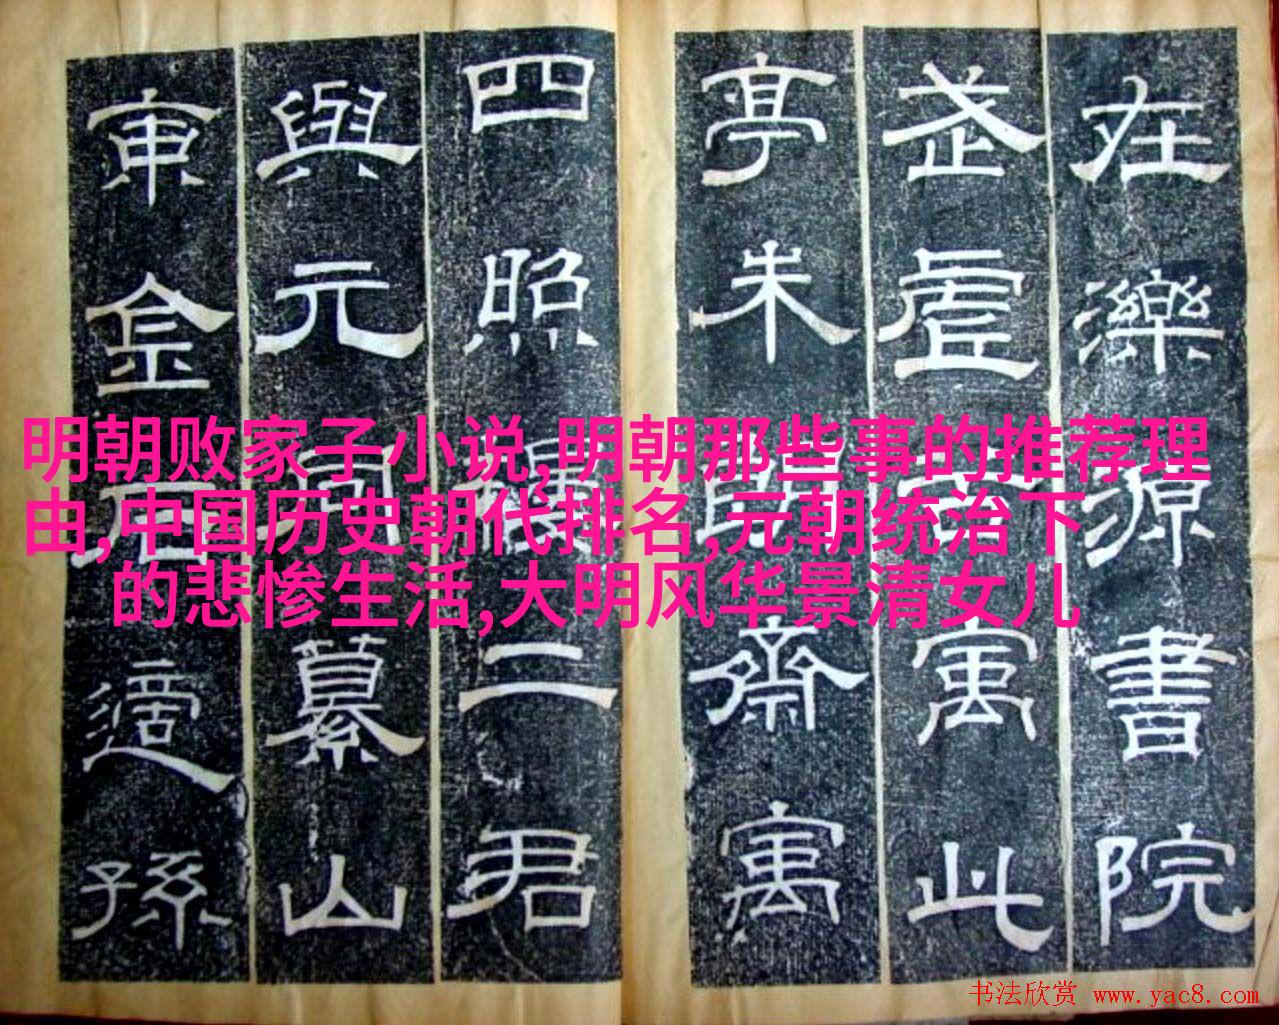 在濼源書院
武虛寓此
亭朱齋寓
四照二君
與元同纂山
東金石適孫
明朝败家子小说,明朝那些事的推荐理
由,中国历史朝代排名,元朝统治下
的悲惨生活,大明风华景清女儿
书法欣赏 www.yac8.com